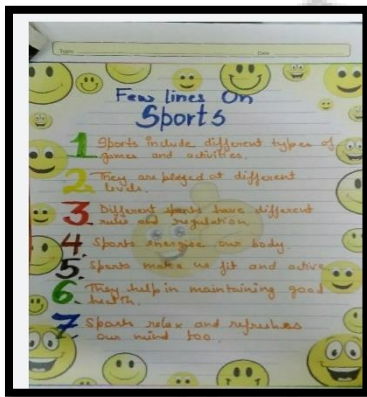 Topic
Date
Few lines On
Sports
1 Sports include different types of
games and activities.
2. They are played at different
levels.
3. Different sports have different
rules and regulation.
4. Sports energise our body.
5. Sports make us fit and active
6. They help in maintaining good
health.
7. Sports relax and refreshes
our mind too.